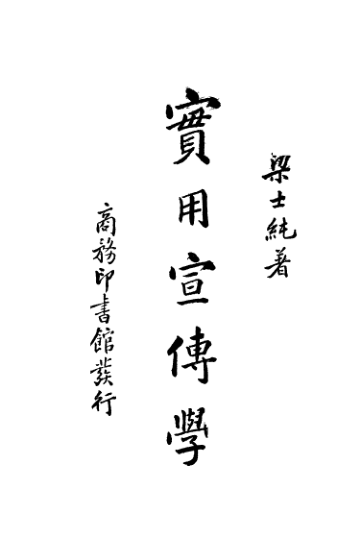 梁士純著
實用宣傳學
商務印書館發行